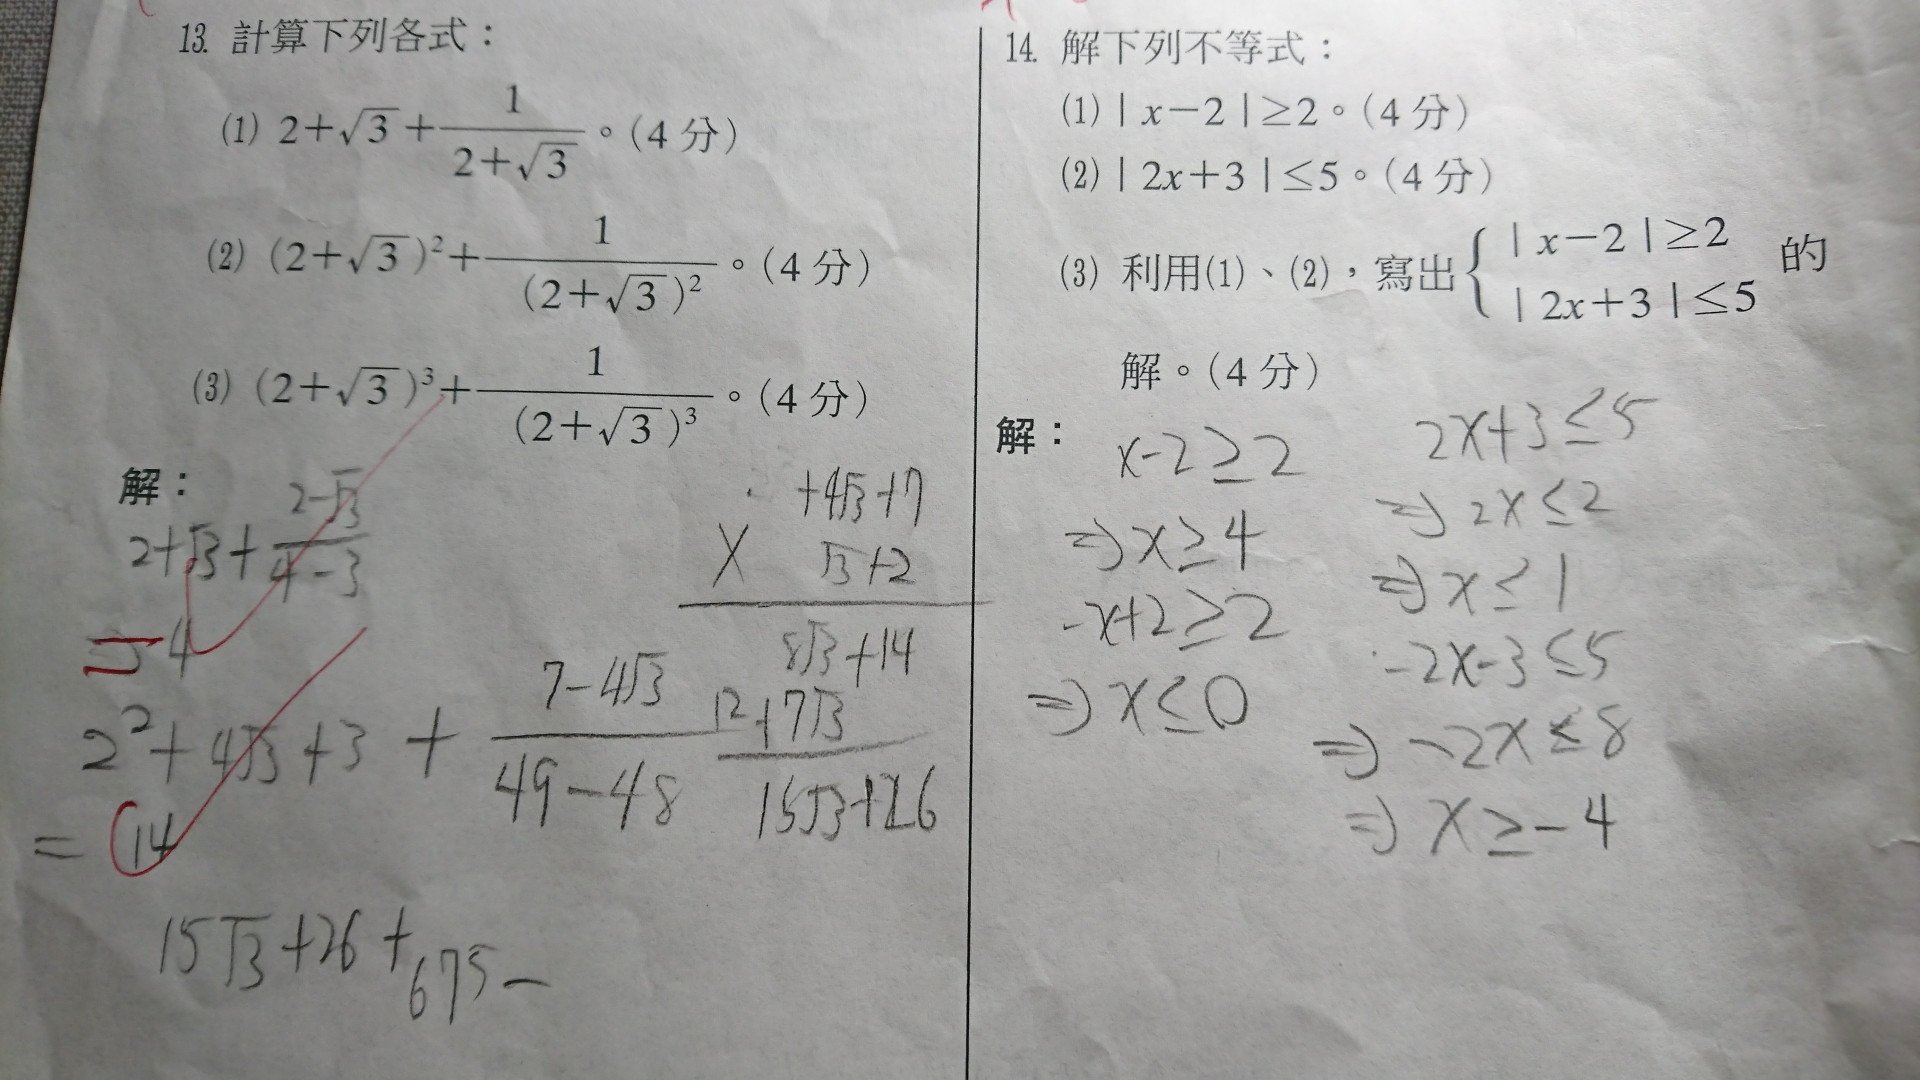 13. 計算下列各式：
(1) 2+√3+1/(2+√3)。(4分)
(2) (2+√3)²+1/(2+√3)²。(4分)
(3) (2+√3)³+1/(2+√3)³。(4分)
解：
2+√3+(2-√3)/(4-3)
=4
2²+4√3+3+(7-4√3)/(49-48)
=14
+4√3+7
× √3+2
8√3+14
12+7√3
15√3+26
15√3+26+
675-
14. 解下列不等式：
(1) | x-2 |≥2。(4分)
(2) | 2x+3 |≤5。(4分)
(3) 利用(1)、(2)，寫出{ | x-2 |≥2
| 2x+3 |≤5 的
解。(4分)
解：
x-2≥2
⇒x≥4
-x+2≥2
⇒x≤0
2x+3≤5
⇒2x≤2
⇒x≤1
-2x-3≤5
⇒-2x≤8
⇒x≥-4